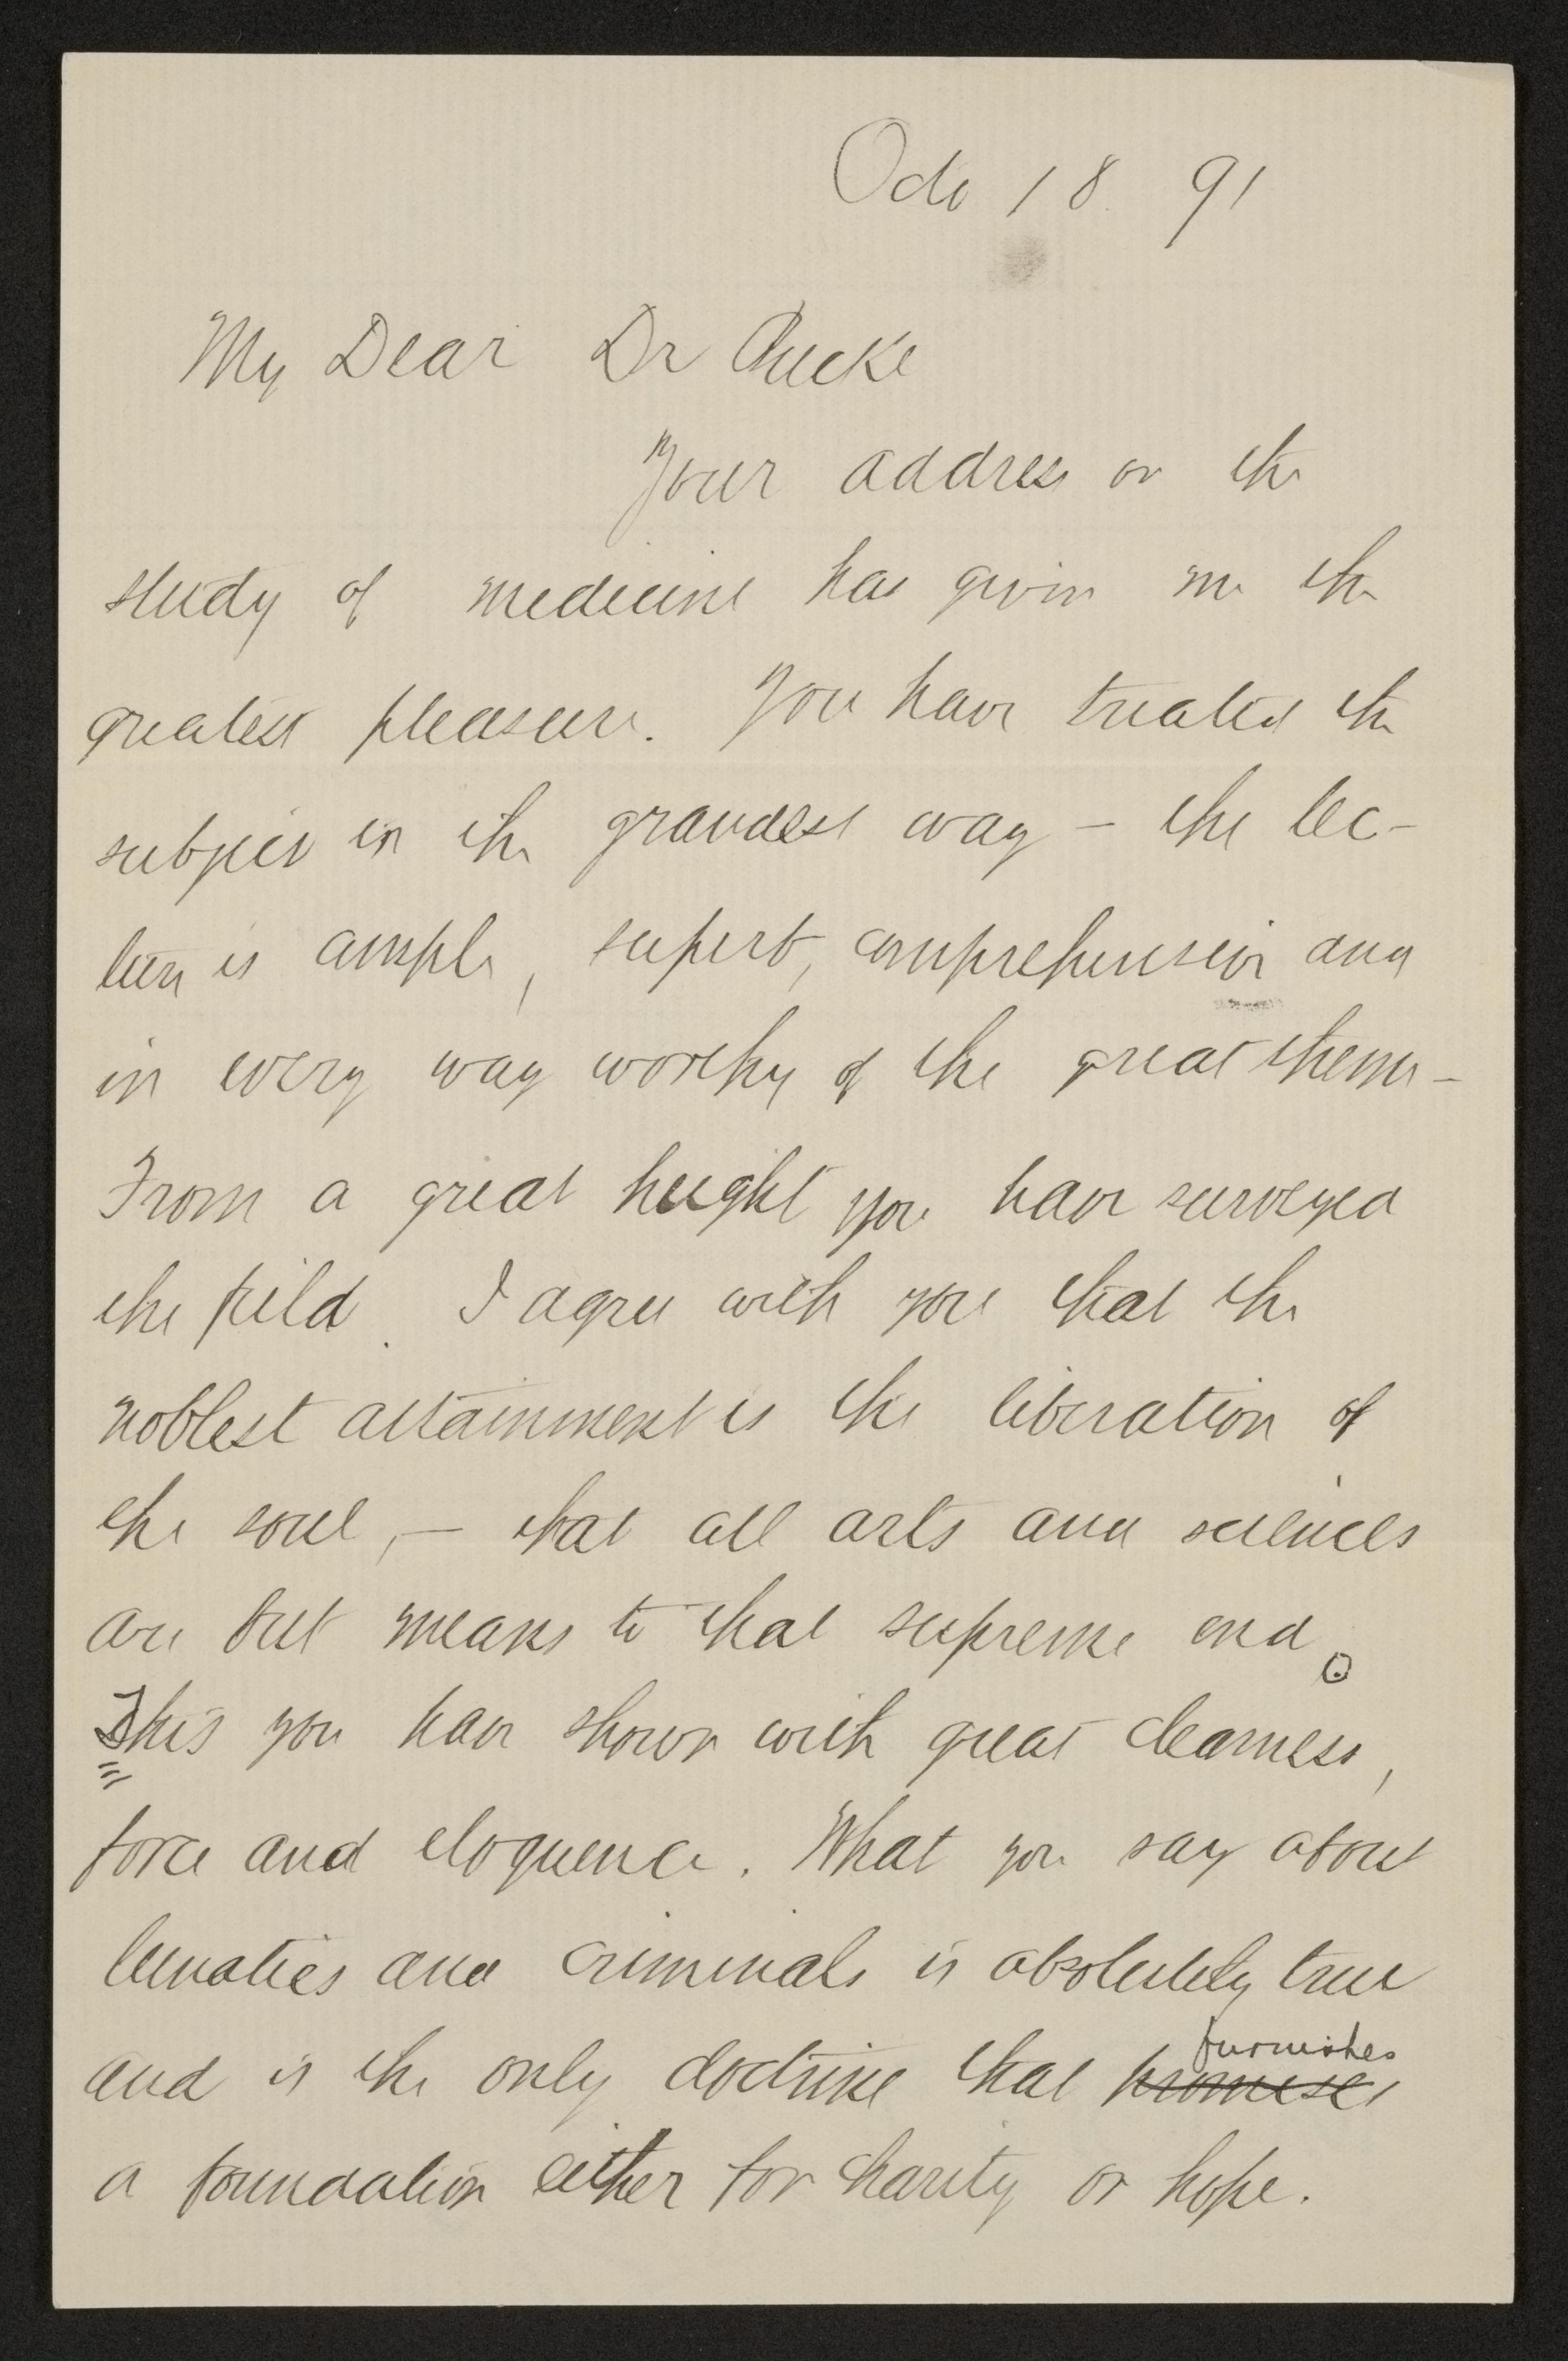 Oct 18. 91
My Dear Dr Bucke
Your address on the
study of medicine has given me the
greatest pleasure. You have treated the
subject in the grandest way — the lec-
ture is ample, superb, comprehensive and
in every way worthy of the great theme —
From a great height you have surveyed
the field. I agree with you that the
noblest attainment is the liberation of
the soul, — that all arts and sciences
are but means to that supreme end.
This you have shown with great clearness,
force and eloquence. What you say about
lunatics and criminals is absolutely true
furnishes
and is the only doctrine that promises
a foundation either for charity or hope.